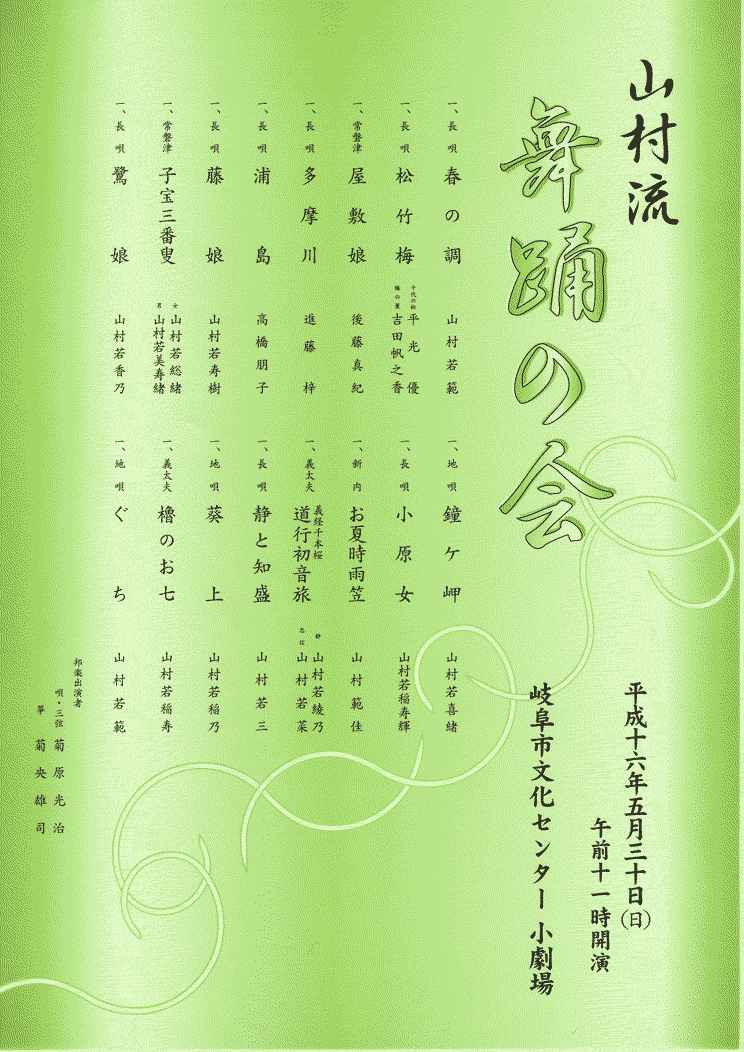 山村流
舞踊の会
平成十六年五月三十日(日)
午前十一時開演
岐阜市文化センター 小劇場
一、長唄 春の調 山村若範
一、長唄 松竹梅 千代の松 平光優
梅の薫 吉田帆之香
一、常磐津 屋敷娘 後藤真紀
一、長唄 多摩川 進藤梓
一、長唄 浦島 高橋朋子
一、長唄 藤娘 山村若寿樹
一、常磐津 子宝三番叟 女 山村若総緒
男 山村若美寿緒
一、長唄 鷺娘 山村若香乃
一、地唄 鐘ケ岬 山村若喜緒
一、長唄 小原女 山村若稲寿輝
一、新内 お夏時雨笠 山村範佳
一、義太夫 義経千本桜 道行初音旅 静 山村若綾乃
忠信 山村若菜
一、長唄 静と知盛 山村若三
一、地唄 葵上 山村若稲乃
一、義太夫 櫓のお七 山村若稲寿
一、地唄 ぐち 山村若範
邦楽出演者
唄・三弦 菊原光治
箏 菊央雄司